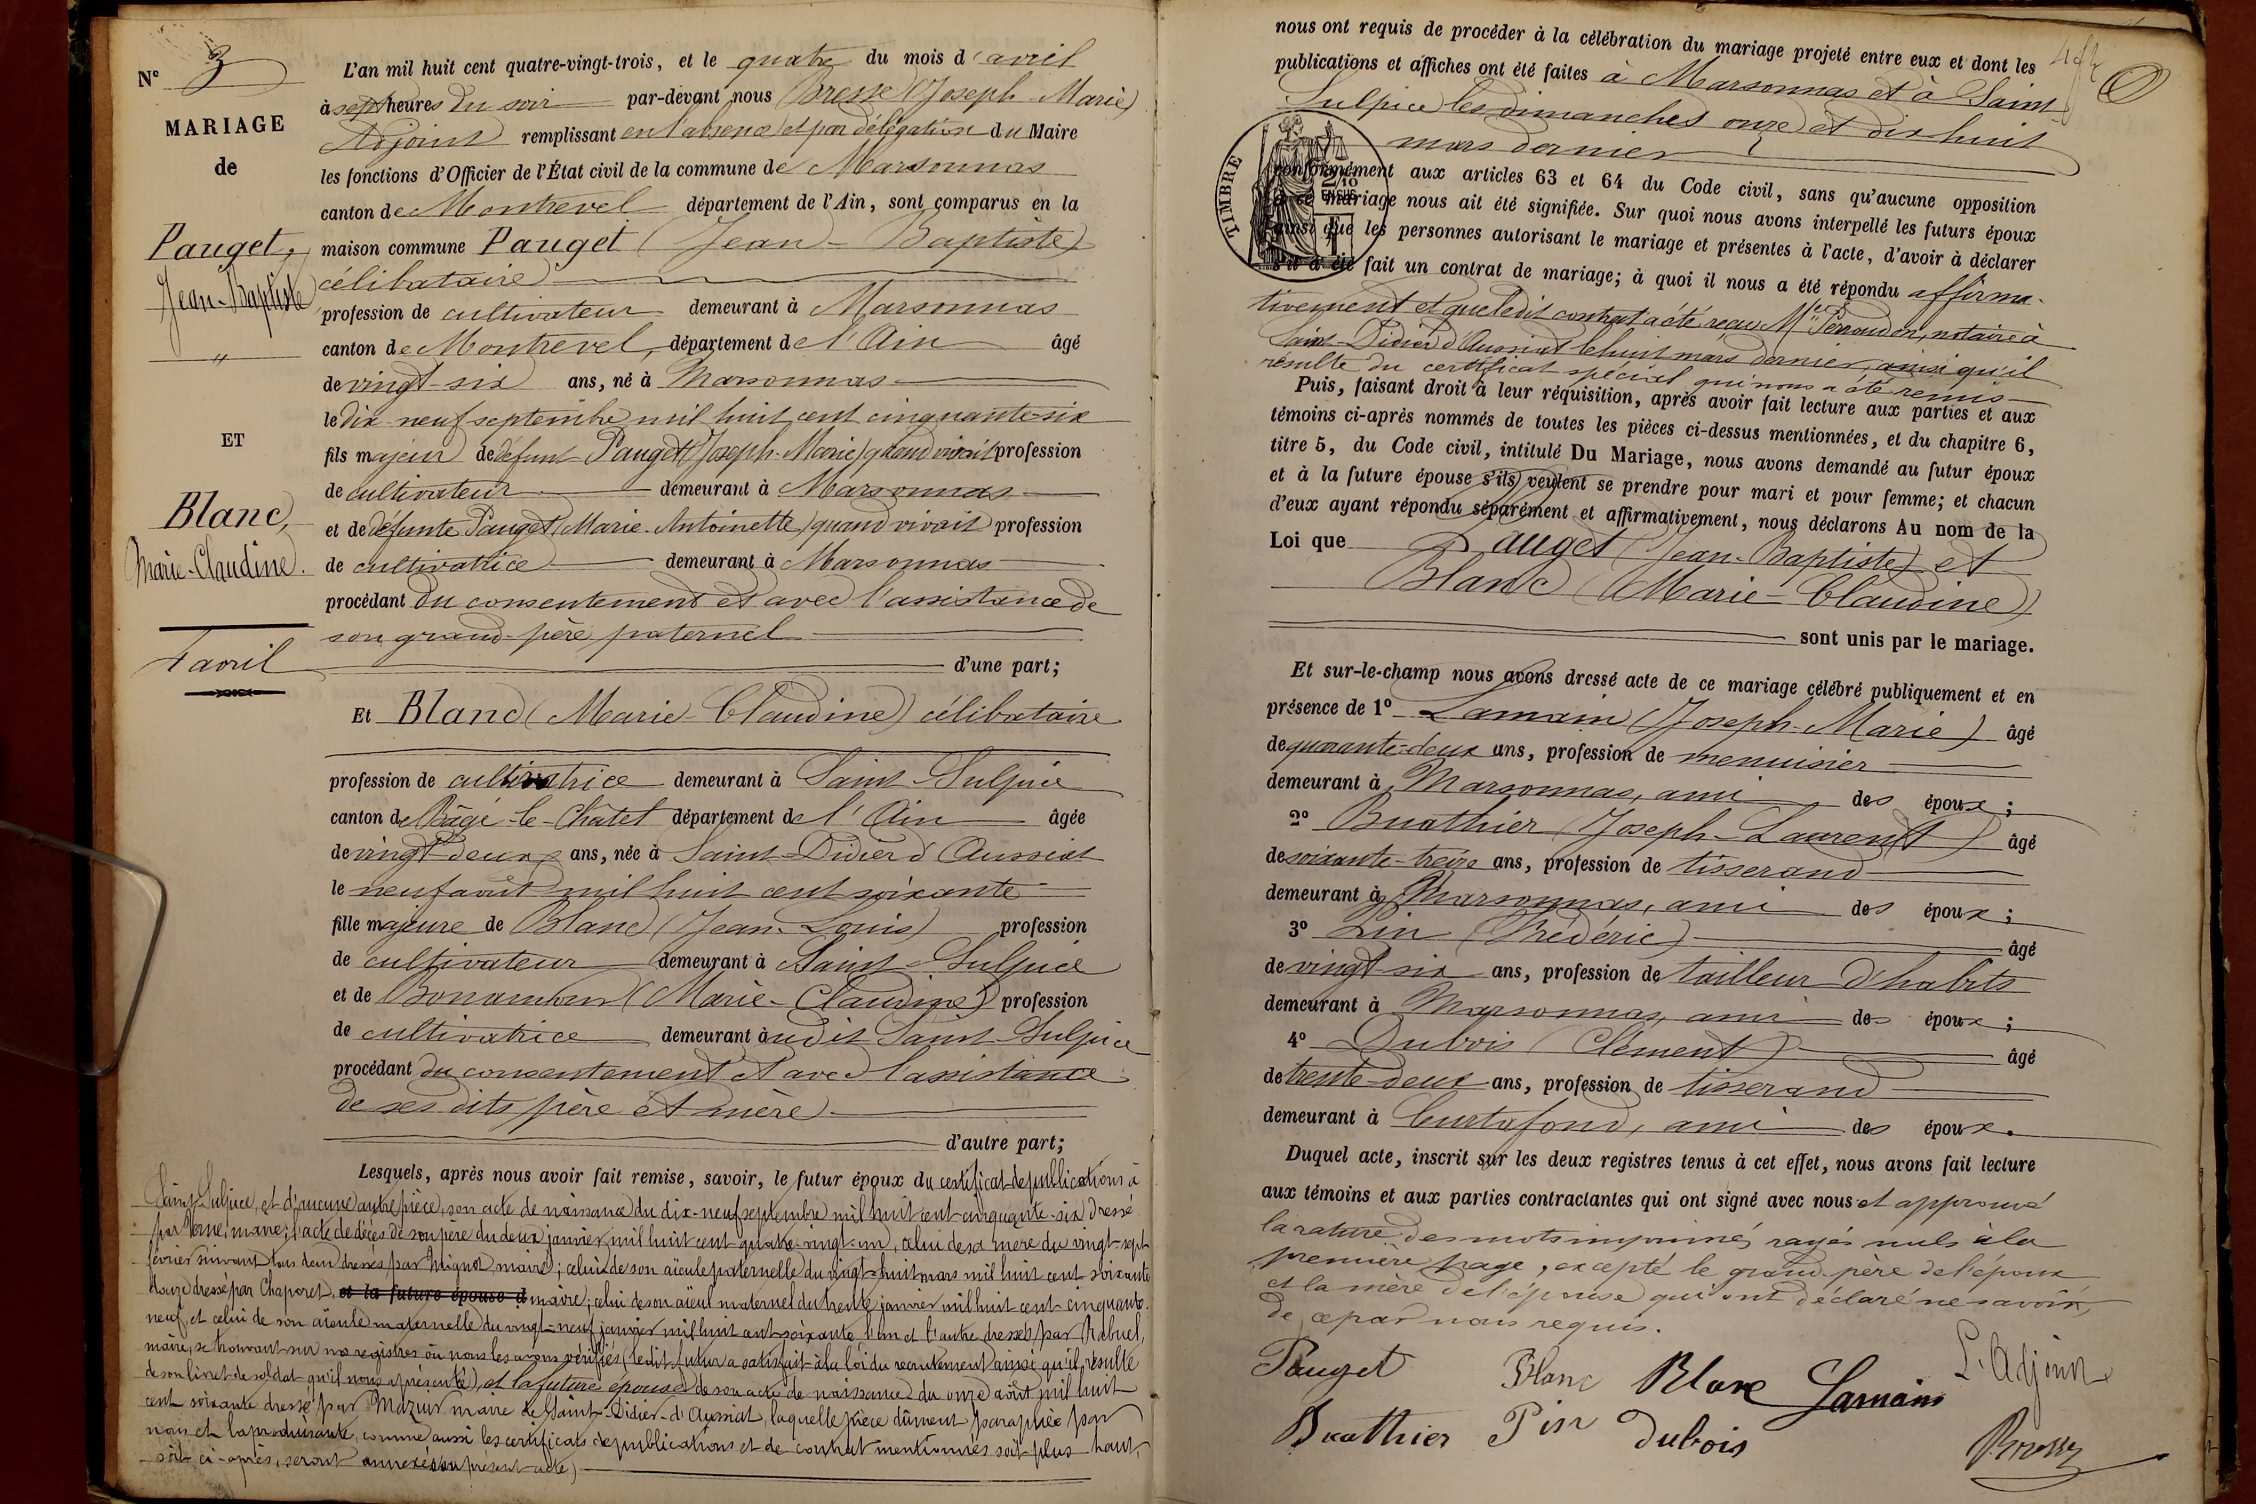 N° 3
MARIAGE
de
Pauget,
Jean-Baptiste
"
ET
Blanc,
Marie-Claudine.
4 avril
L'an mil huit cent quatre-vingt-trois, et le quatre du mois d'avril
à sept heures du soir par-devant nous Bresse (Joseph-Marie)
Adjoint remplissant en l'absence et par délégation du Maire
les fonctions d'Officier de l'État civil de la commune de Marsonnas
canton de Montrevel département de l'Ain, sont comparus en la
maison commune Pauget (Jean-Baptiste)
célibataire
profession de cultivateur demeurant à Marsonnas
canton de Montrevel, département de l'Ain âgé
de vingt-six ans, né à Marsonnas
le dix-neuf septembre mil huit cent cinquante-six
fils majeur de défunt Pauget (Joseph-Marie) quand vivait profession
de cultivateur demeurant à Marsonnas
et de défunte Pauget (Marie-Antoinette) quand vivait profession
de cultivatrice demeurant à Marsonnas
procédant du consentement et avec l'assistance de
son grand-père paternel
d'une part;
Et Blanc (Marie-Claudine) célibataire
profession de cultivatrice demeurant à Saint-Sulpice
canton de Bâgé-le-Châtel département de l'Ain âgée
de vingt-deux ans, née à Saint-Didier d'Aussiat
le neuf août mil huit cent soixante
fille majeure de Blanc (Jean-Louis) profession
de cultivateur demeurant à Saint-Sulpice
et de Bonamour (Marie-Claudine) profession
de cultivatrice demeurant audit Saint-Sulpice
procédant du consentement et avec l'assistance
de ses dits père et mère
d'autre part;
Lesquels, après nous avoir fait remise, savoir, le futur époux du certificat de publications à
Saint-Sulpice, et d'aucune autre pièce, son acte de naissance du dix-neuf septembre mil huit cent cinquante-six dressé
par Verne, maire; l'acte de décès de son père du deux janvier mil huit cent quatre-vingt-un, celui de sa mère du vingt-sept
février suivant tous deux dressés par Mignot, maire; celui de son aïeule paternelle du vingt-huit mars mil huit cent soixante
douze dressé par Chaponet, et la future épouse d maire; celui de son aïeul maternel du trente janvier mil huit cent cinquante-
neuf, et celui de son aïeule maternelle du vingt-neuf janvier mil huit cent soixante l'un et l'autre dressés par Chabuel,
maire, se trouvant sur nos registres où nous les avons vérifiés (ledit futur a satisfait à la loi du recrutement ainsi qu'il résulte
de son livret de soldat qu'il nous a présenté), et la future épouse de son acte de naissance du onze août mil huit
cent soixante dressé par Mazuir maire de Saint-Didier-d'Aussiat, laquelle pièce dûment paraphée par
nous et la produisante, comme aussi les certificats de publications et de contrat mentionnés soit plus haut,
soit ci-après, seront annexés au présent acte)
nous ont requis de procéder à la célébration du mariage projeté entre eux et dont les
publications et affiches ont été faites à Marsonnas et à Saint-
Sulpice les dimanches onze et dix-huit
mars dernier
TIMBRE
2/10
EN SUS
conformément aux articles 63 et 64 du Code civil, sans qu'aucune opposition
à ce mariage nous ait été signifiée. Sur quoi nous avons interpellé les futurs époux
ainsi que les personnes autorisant le mariage et présentes à l'acte, d'avoir à déclarer
s'il a été fait un contrat de mariage; à quoi il nous a été répondu affirma-
tivement et que ledit contrat a été reçu Mtre Perroudon, notaire à
Saint-Didier d'Aussiat le huit mars dernier, ainsi qu'il
résulte du certificat spécial qui nous a été remis
Puis, faisant droit à leur réquisition, après avoir fait lecture aux parties et aux
témoins ci-après nommés de toutes les pièces ci-dessus mentionnées, et du chapitre 6,
titre 5, du Code civil, intitulé Du Mariage, nous avons demandé au futur époux
et à la future épouse s'ils veulent se prendre pour mari et pour femme; et chacun
d'eux ayant répondu séparément et affirmativement, nous déclarons Au nom de la
Loi que Pauget (Jean-Baptiste) et
Blanc (Marie-Claudine)
sont unis par le mariage.
Et sur-le-champ nous avons dressé acte de ce mariage célébré publiquement et en
présence de 1° Lamain (Joseph-Marie) âgé
de quarante-deux ans, profession de menuisier
demeurant à Marsonnas, ami des époux;
2° Buathier (Joseph-Laurent) âgé
de soixante-treize ans, profession de tisserand
demeurant à Marsonnas, ami des époux;
3° Pin (Frédéric) âgé
de vingt-six ans, profession de tailleur d'habits
demeurant à Marsonnas, ami des époux;
4° Dubois (Clément) âgé
de trente-deux ans, profession de tisserand
demeurant à Curtafond, ami des époux.
Duquel acte, inscrit sur les deux registres tenus à cet effet, nous avons fait lecture
aux témoins et aux parties contractantes qui ont signé avec nous et approuvé
la rature des mots imprimés rayés nuls à la
première page, excepté le grand-père de l'époux
et la mère de l'épouse qui ont déclaré ne savoir,
de ce par nous requis.
Pauget Blanc Blanc Lamain L'Adjoint
Buathier Pin Dubois Bresse